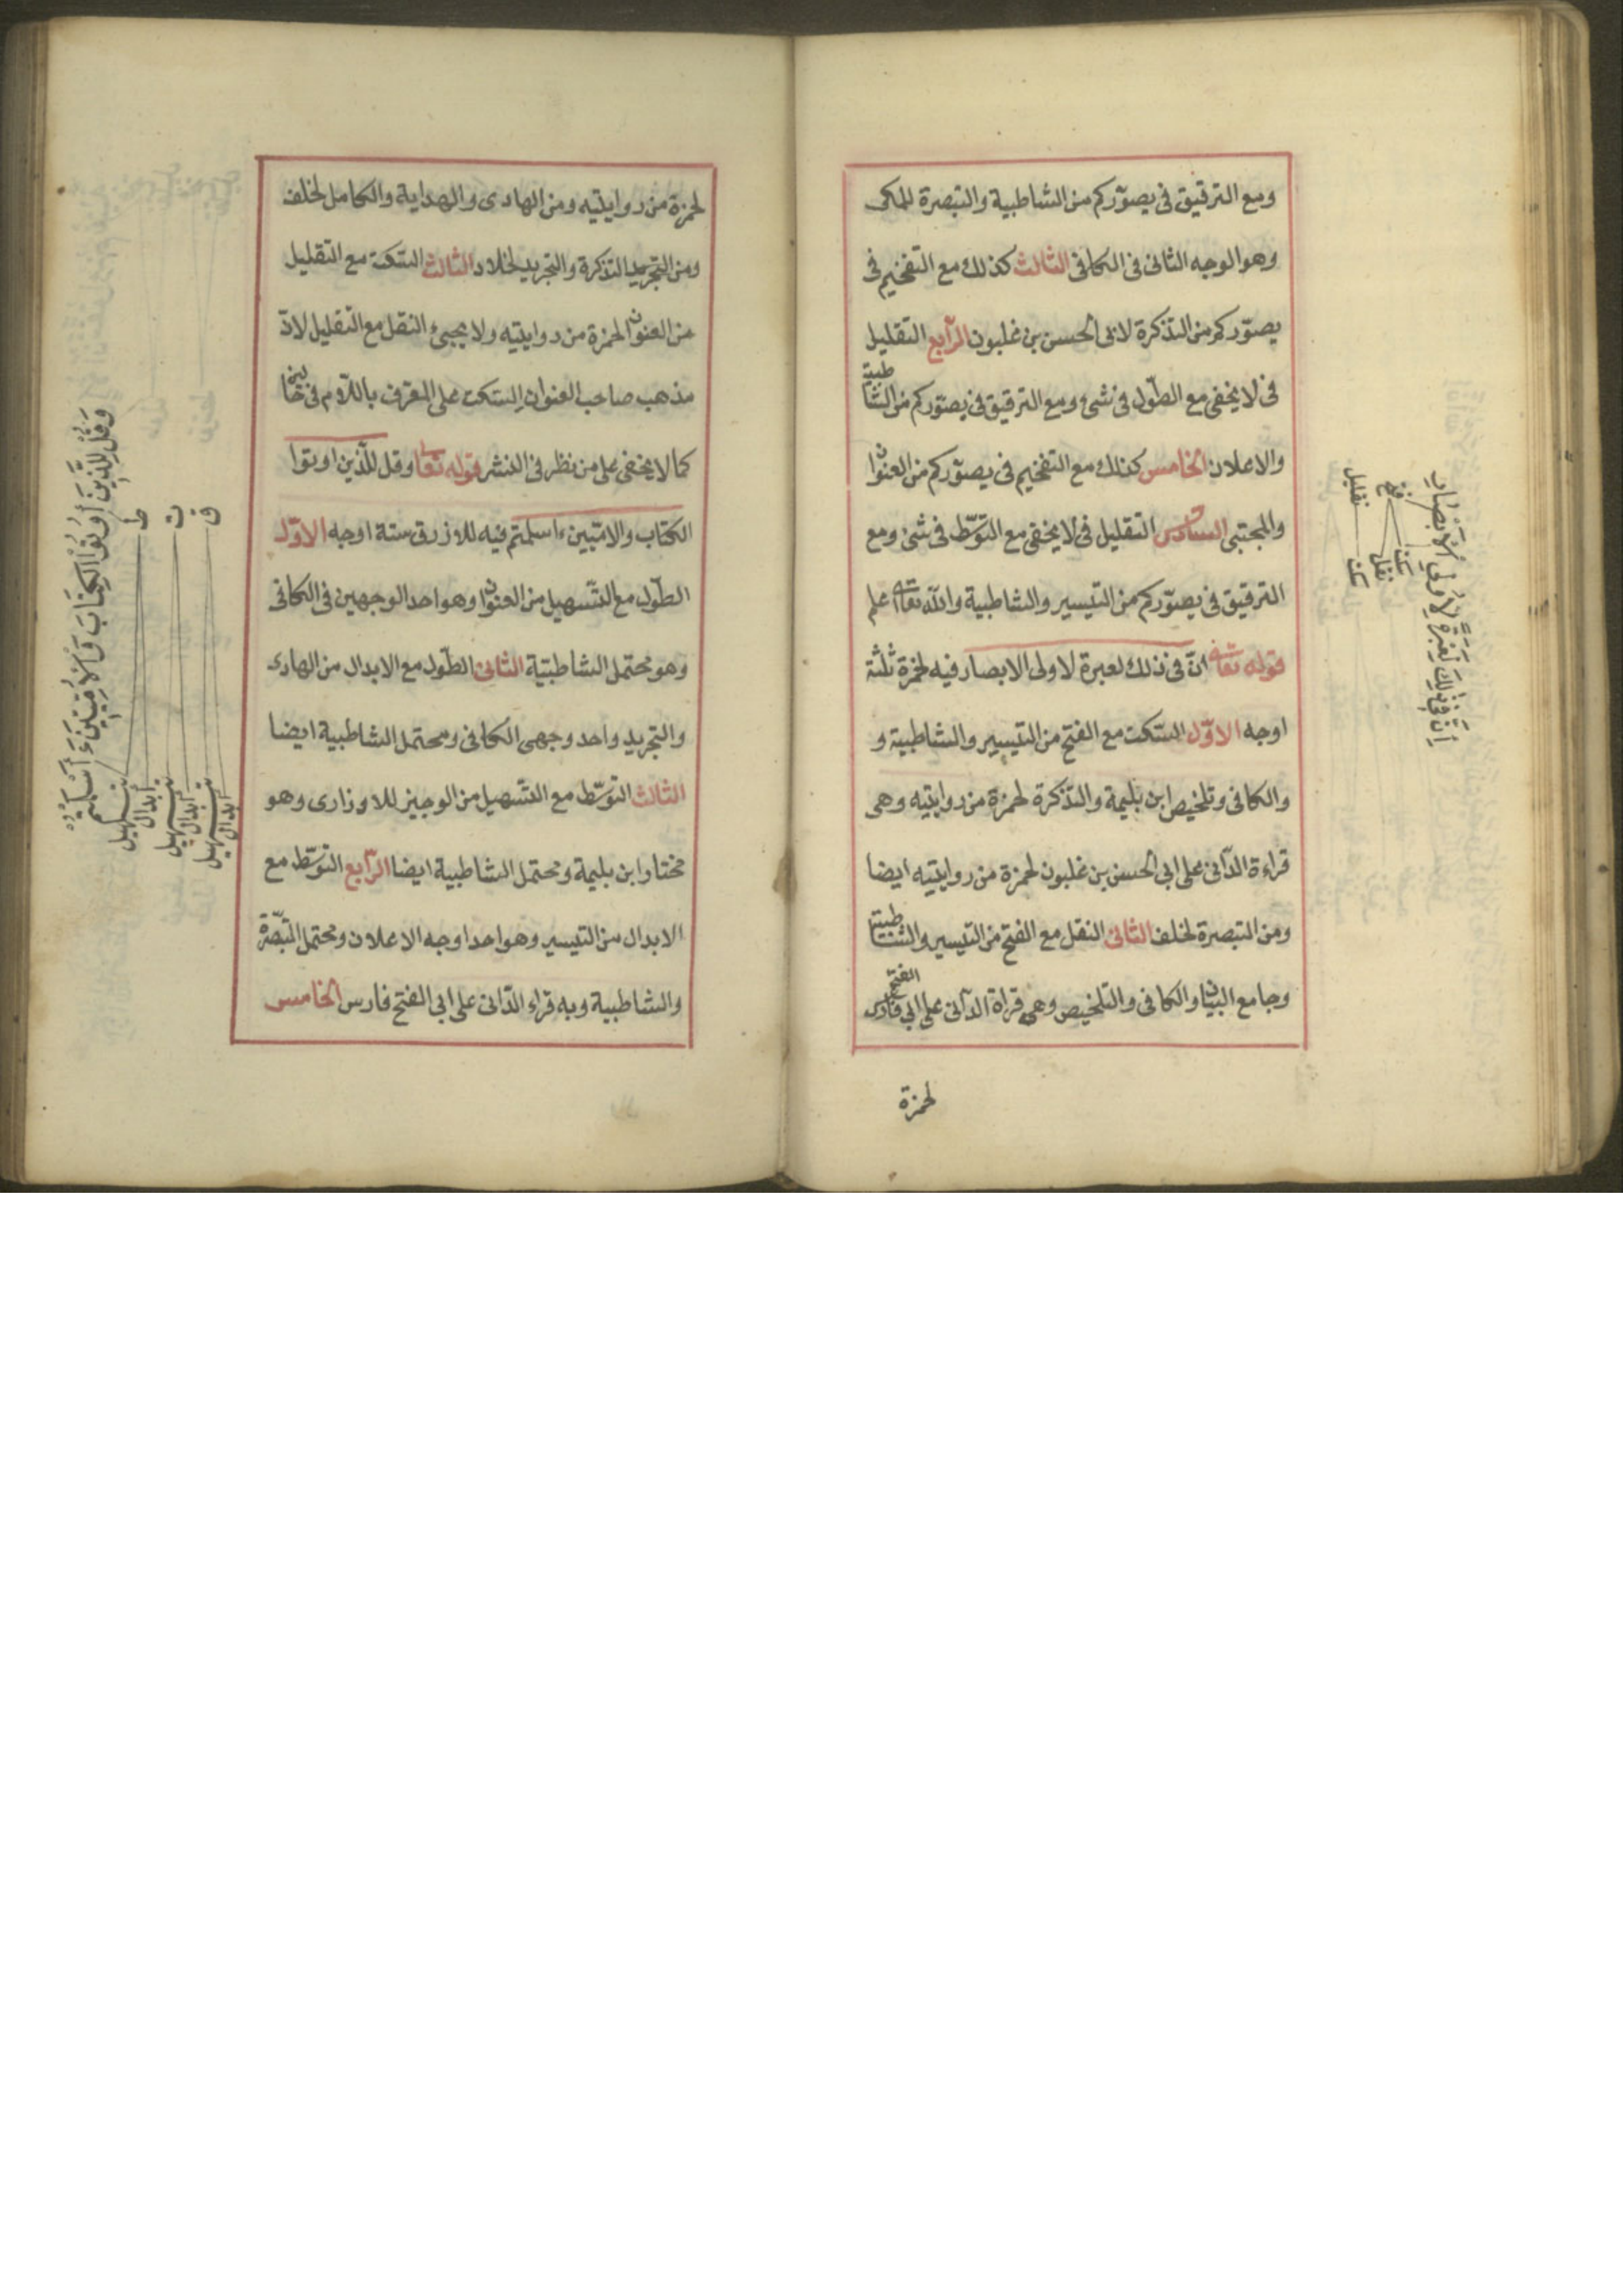 ومع الترقيق في يصوّركم من الشاطبية والتبصرة للمكى
وهو الوجه الثانى فى الكافى الثالث كذلك مع التفخيم فى
يصوّركم من التذكرة لابى الحسن بن غلبون الرّابع التقليل
فى لا يخفى مع الطّول فى شىء ومع الترقيق فى يصوّركم من الشاطبية
والاعلان الخامس كذلك مع التفخيم فى يصوّركم من العنوان
والمجتبى السادس التقليل فى لا يخفى مع التوسّط فى شىء ومع
الترقيق فى يصوّركم من التيسير والشاطبية والله تعالى اعلم
قوله تعالى انّ فى ذلك لعبرة لاولى الابصار فيه لحمزة ثلثة
اوجه الاوّل السّكت مع الفتح من التيسير والشاطبية و
والكافى وتلخيص ابن بليمة والتذكرة لحمزة من روايتيه وهى
قراءة الدّانى على ابى الحسن بن غلبون لحمزة من روايتيه ايضا
ومن التبصرة لخلف الثانى النقل مع الفتح من التيسير والشاطبية
وجامع البيان والكافى والتلخيص وهى قراة الدّانى على ابى الفتح فارس
لحمزة
اِنَّ فِى ذٰلِكَ لَعِبْرَةً لِاُولِى الْاَبْصَارِ
فتح
سكت
نقل
تقليل
سكت
لحمزة من روايتيه ومن الهادى والهداية والكامل لخلف
ومن التجريد التذكرة والتجريد لخلاد الثالث السّكت مع التقليل
من العنوان لحمزة من روايتيه ولا يجيئ النقل مع التقليل لانّ
مذهب صاحب العنوان السكت على المعرّف باللّام فى
كما لا يخفى على من نظر فى النشر قوله تعالى وقل للّذين اوتوا
الكتاب والامّيين ءاسلمتم فيه للازرق ستة اوجه الاوّل
الطّول مع التّسهيل من العنوان وهو احد الوجهين فى الكافى
وهو محتمل الشاطبيّة الثانى الطّول مع الابدال من الهادى
والتجريد واحد وجهى الكافى ومحتمل الشاطبية ايضا
الثالث التوسّط مع التّسهيل من الوجيز للاوزارى وهو
مختار ابن بليمة ومحتمل الشاطبية ايضا الرّابع التوسّط مع
الابدال من التيسير وهو احد اوجه الاعلان ومحتمل التبصّرة
والشاطبية وبه قراء الدّانى على ابى الفتح فارس الخامس
وَقُلْ لِلَّذِينَ اُوتُوا الْكِتَابَ وَالْاُمِّيِّينَ ءَاَسْلَمْتُمْ
ط
تسهيل
ابدال
ت
تسهيل
ابدال
ق
تسهيل
ابدال